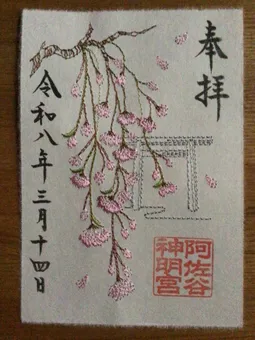 奉拝
令和八年三月十四日
阿佐谷
神明宮